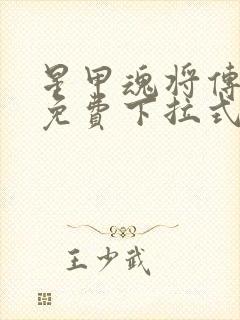 星甲魂将傳
免費下拉式
王少武